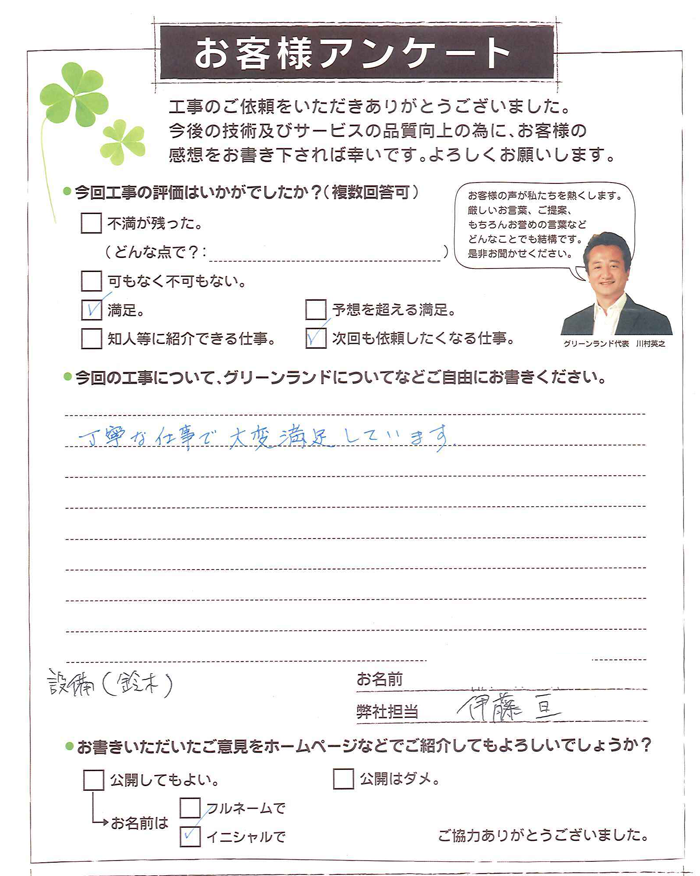 お客様アンケート
工事のご依頼をいただきありがとうございました。
今後の技術及びサービスの品質向上の為に、お客様の
感想をお書き下されば幸いです。よろしくお願いします。
●今回工事の評価はいかがでしたか?(複数回答可)
お客様の声が私たちを熱くします。
厳しいお言葉、ご提案、
もちろんお誉めの言葉など
どんなことでも結構です。
是非お聞かせください。
不満が残った。
(どんな点で?: )
可もなく不可もない。
満足。
予想を超える満足。
知人等に紹介できる仕事。
次回も依頼したくなる仕事。
グリーンランド代表 川村英之
●今回の工事について、グリーンランドについてなどご自由にお書きください。
丁寧な仕事で大変満足しています
設備(鈴木)
お名前
弊社担当 伊藤 亘
●お書きいただいたご意見をホームページなどでご紹介してもよろしいでしょうか?
公開してもよい。
公開はダメ。
お名前は
フルネームで
イニシャルで
ご協力ありがとうございました。